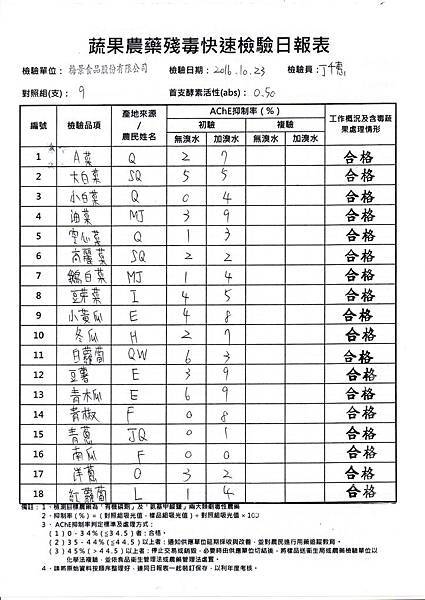 蔬果農藥殘毒快速檢驗日報表
檢驗單位： 裕景食品股份有限公司 檢驗日期：2016.10.23 檢驗員：丁千惠
對照組(支)： 9 首支酵素活性(abs)： 0.50
編號 檢驗品項 產地來源/農民姓名 AChE抑制率(%) 工作概況及含毒蔬果處理情形
初驗 複驗
無溴水 加溴水 無溴水 加溴水
1 A菜 Q 2 7 合格
2 大白菜 SQ 5 5 合格
3 小白菜 Q 0 4 合格
4 油菜 MJ 3 9 合格
5 空心菜 Q 1 3 合格
6 高麗菜 SQ 2 2 合格
7 鵝白菜 MJ 1 4 合格
8 豆芽菜 I 4 5 合格
9 小黃瓜 E 4 8 合格
10 冬瓜 H 2 7 合格
11 白蘿蔔 QW 6 3 合格
12 豆薯 E 3 9 合格
13 青木瓜 E 6 9 合格
14 青椒 F 0 8 合格
15 青蔥 JQ 0 1 合格
16 南瓜 F 0 0 合格
17 洋蔥 O 3 2 合格
18 紅蘿蔔 L 1 4 合格
備註：1、檢測目標農藥為「有機磷劑」及「氨基甲酸鹽」兩大類劇毒性農藥
2、抑制率(%)=(對照組吸光值-樣品組吸光值)÷對照組吸光值×100
3、AChE抑制率判定標準及處理方式：
(1)0-34%(≦34.5)者：合格。
(2)35-44%(≦44.5)以上者：通知供應單位延期採收與改善，並對農民進行用藥追蹤教育。
(3)45%(>44.5)以上者：停止交易或銷毀，必要時由供應單位切結後，將樣品送衛生局或農藥檢驗單位以
化學法複驗，並依食品衛生管理法或農藥管理法處置。
4、請將原始資料按順序整理好，連同日報表一起裝訂保存，以利年度考核。